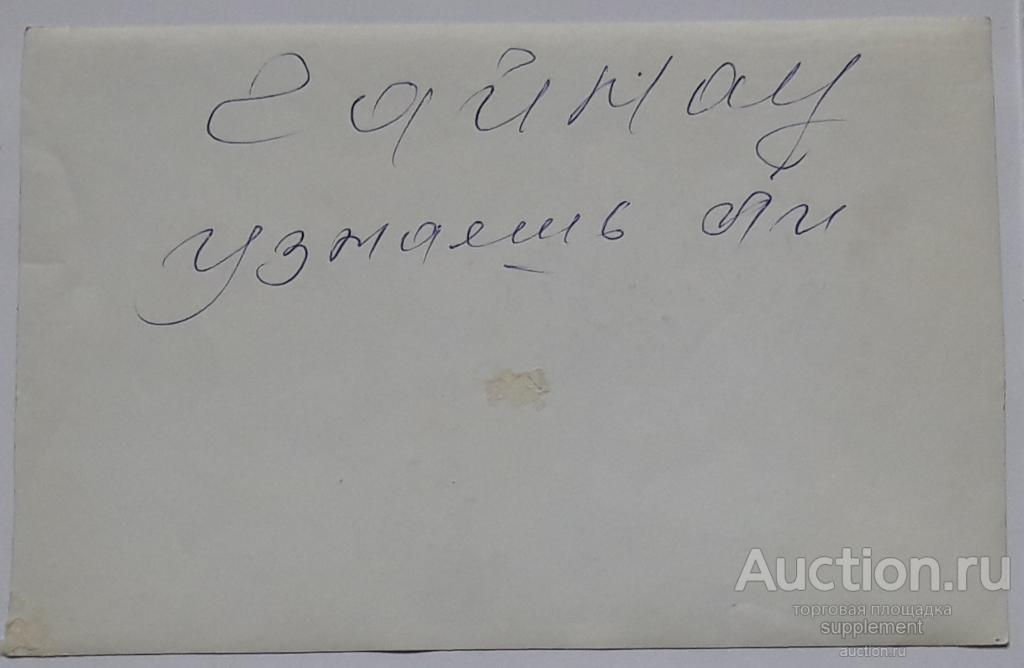 Сайнау
узнаешь ли
Auction.ru
торговая площадка
supplement
auction.ru